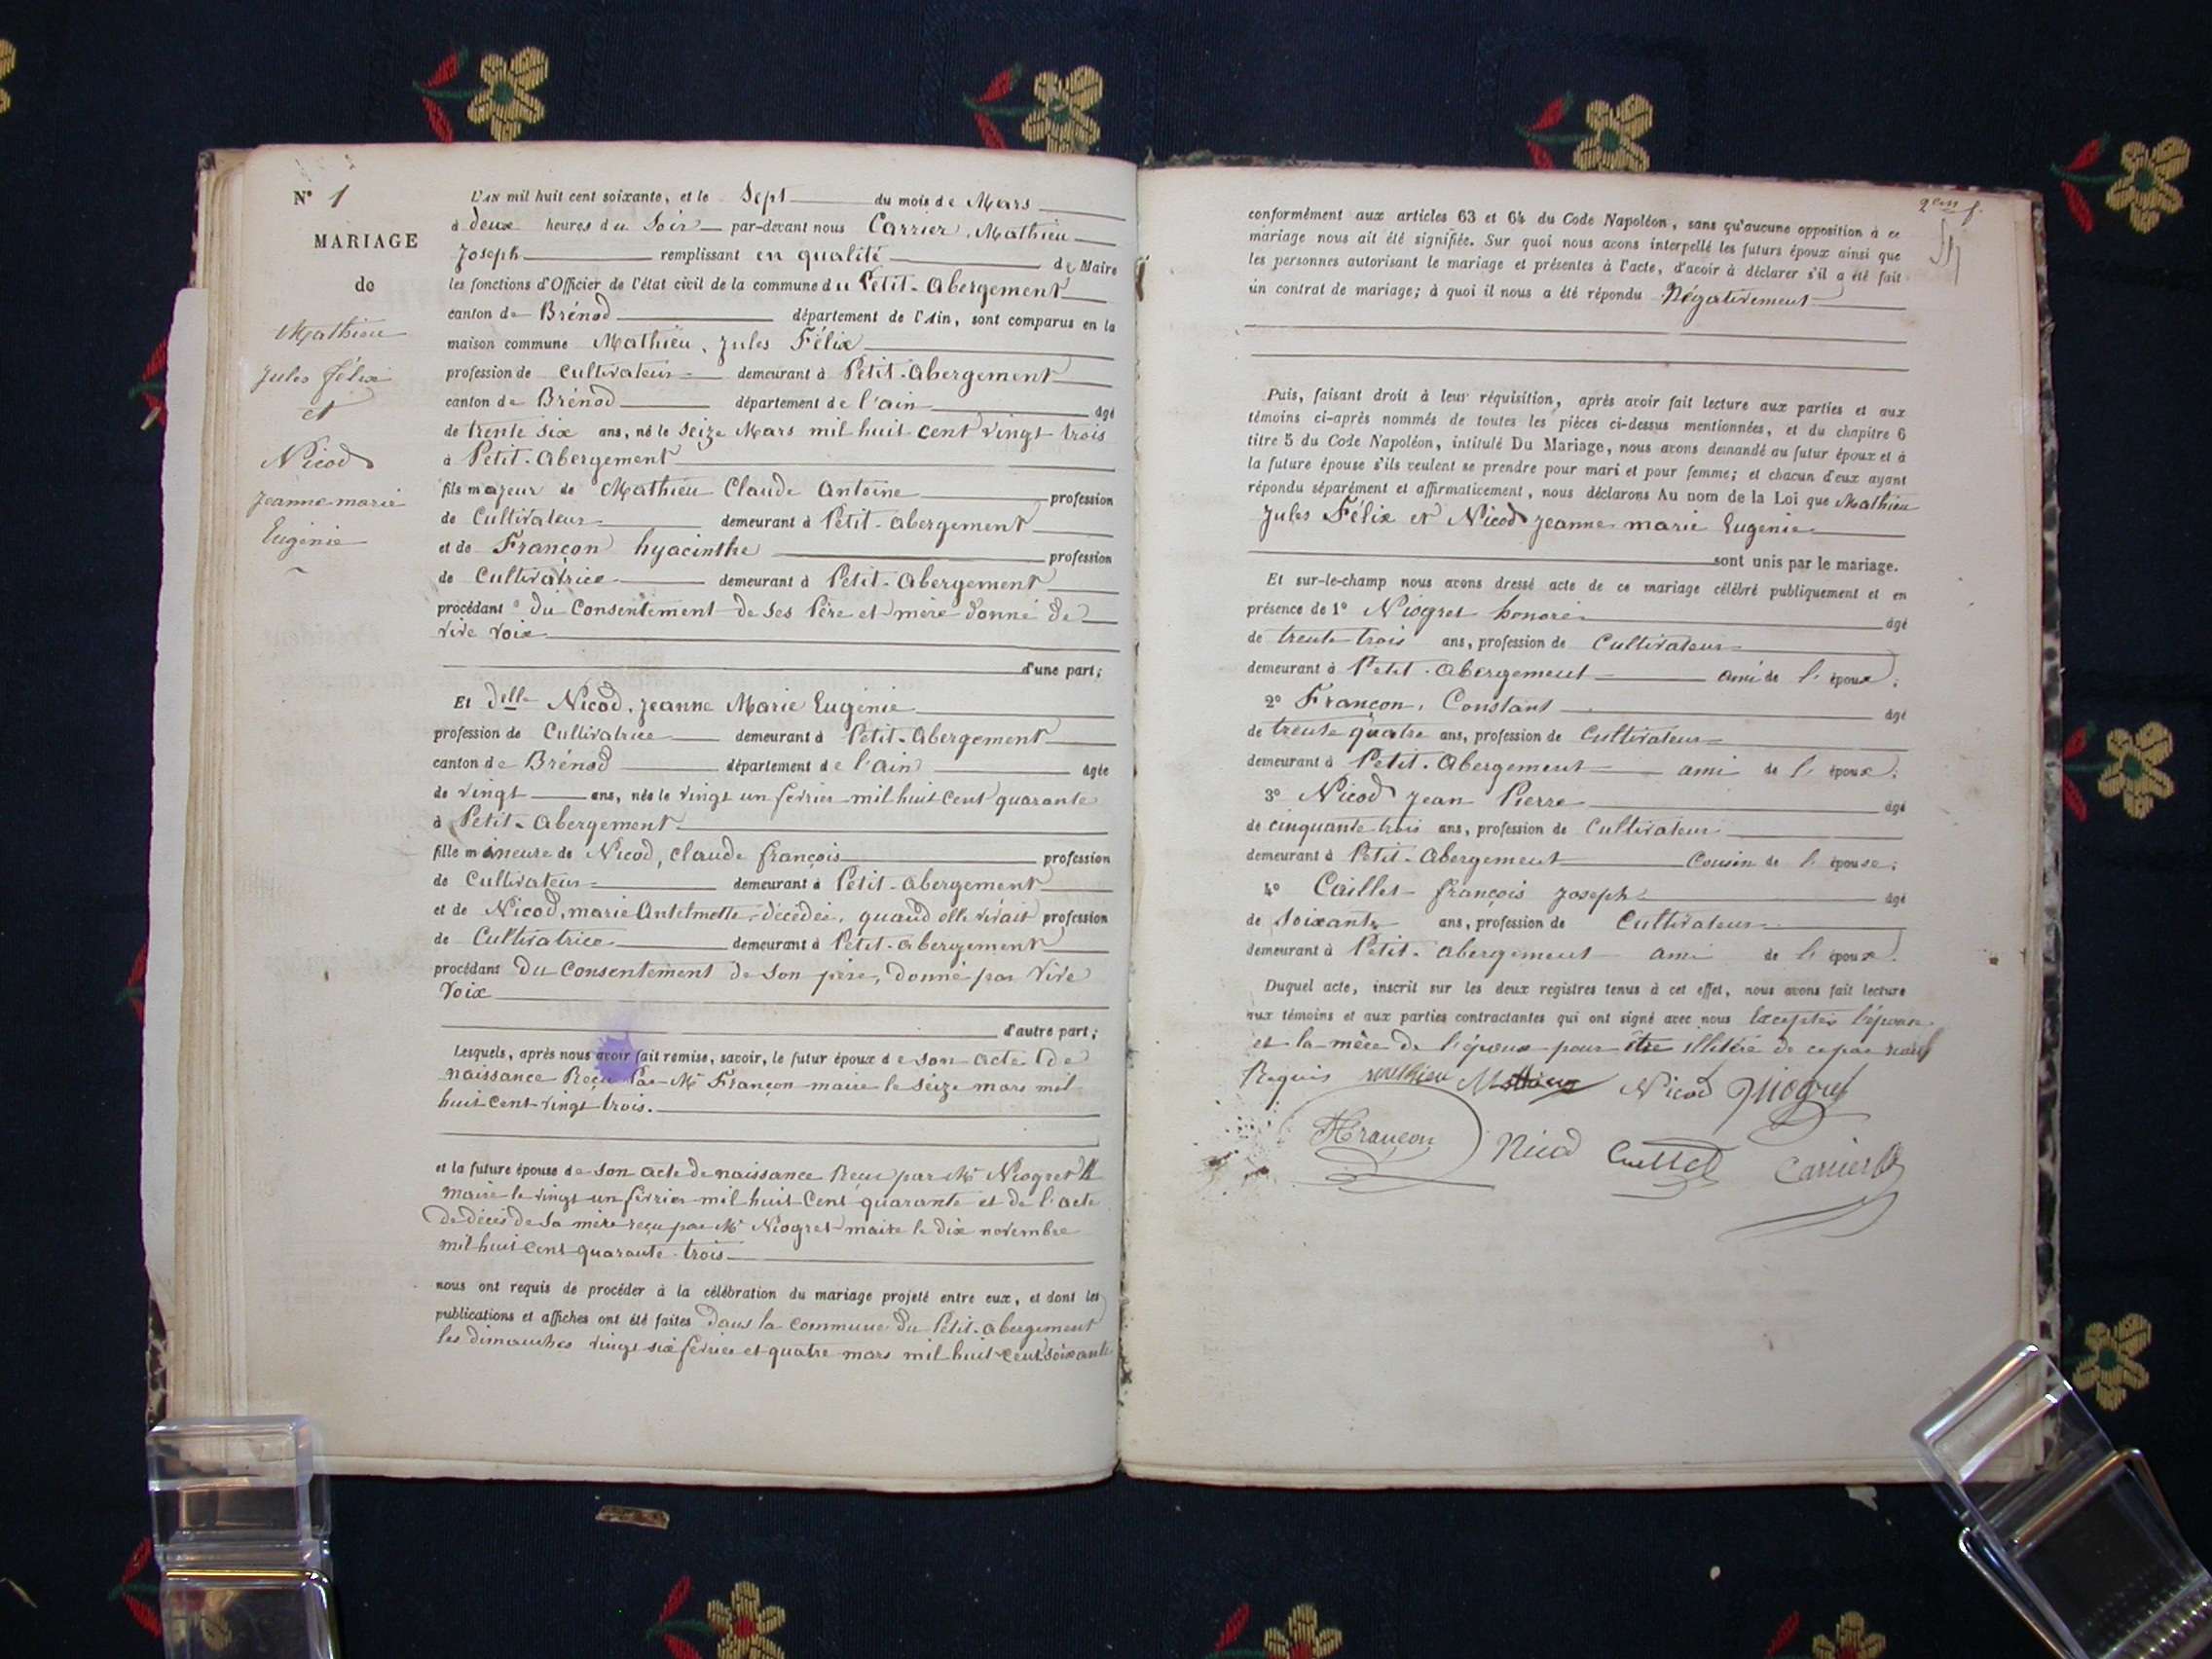 N° 1
MARIAGE
de
Mathieu
Jules félix
et
Nicod
Jeanne marie
Eugénie
L'AN mil huit cent soixante, et le Sept du mois de Mars
à deux heures du Soir par-devant nous Carrier, Mathieu
Joseph remplissant en qualité de Maire
les fonctions d'Officier de l'état civil de la commune du Petit-Abergement
canton de Brénod département de l'Ain, sont comparus en la
maison commune Mathieu, Jules Félix
profession de Cultivateur demeurant à Petit-Abergement
canton de Brénod département de l'ain âgé
de trente six ans, né le Seize Mars mil huit cent vingt trois
à Petit-Abergement
fils majeur de Mathieu Claude Antoine profession
de Cultivateur demeurant à Petit-Abergement
et de Françon hyacinthe profession
de Cultivatrice demeurant à Petit-Abergement
procédant du Consentement de Ses Père et mère donné de
vive voix
d'une part;
Et delle Nicod, Jeanne Marie Eugénie
profession de Cultivatrice demeurant à Petit-Abergement
canton de Brénod département de l'ain âgée
de vingt ans, née le vingt un février mil huit Cent quarante
à Petit-Abergement
fille mineure de Nicod, Claude françois profession
de Cultivateur demeurant à Petit-Abergement
et de Nicod, marie Antelmette décédée, quand elle vivait profession
de Cultivatrice demeurant à Petit-Abergement
procédant du Consentement de Son père, donné par Vive
Voix
d'autre part;
Lesquels, après nous avoir fait remise, savoir, le futur époux de son acte de
naissance Reçu Par Mr Françon maire le Seize mars mil
huit Cent vingt trois.
et la future épouse de Son acte de naissance Reçu par Mr Niogret
maire le vingt un février mil huit Cent quarante et de l'acte
De décès de Sa mère reçu par Mr Niogret maire le dix novembre
mil huit Cent quarante trois
nous ont requis de procéder à la célébration du mariage projeté entre eux, et dont les
publications et affiches ont été faites Dans la Commune Du Petit-Abergement
les dimanches vingt six février et quatre mars mil huit Cent Soixante
2em f.
conformément aux articles 63 et 64 du Code Napoléon, sans qu'aucune opposition à ce
mariage nous ait été signifiée. Sur quoi nous avons interpellé les futurs époux ainsi que
les personnes autorisant le mariage et présentes à l'acte, d'avoir à déclarer s'il a été fait
un contrat de mariage; à quoi il nous a été répondu Négativement
Puis, faisant droit à leur réquisition, après avoir fait lecture aux parties et aux
témoins ci-après nommés de toutes les pièces ci-dessus mentionnées, et du chapitre 6
titre 5 du Code Napoléon, intitulé Du Mariage, nous avons demandé au futur époux et à
la future épouse s'ils veulent se prendre pour mari et pour femme; et chacun d'eux ayant
répondu séparément et affirmativement, nous déclarons Au nom de la Loi que Mathieu
Jules Félix et Nicod Jeanne marie Eugénie
sont unis par le mariage.
Et sur-le-champ nous avons dressé acte de ce mariage célébré publiquement et en
présence de 1° Niogret honoré âgé
de trente trois ans, profession de Cultivateur
demeurant à Petit-Abergement ami de l' époux;
2° Françon, Constant âgé
de trente quatre ans, profession de Cultivateur
demeurant à Petit-Abergement ami de l' époux;
3° Nicod Jean Pierre âgé
de cinquante trois ans, profession de Cultivateur
demeurant à Petit-Abergement Cousin de l' épouse;
4° Caillet françois Joseph âgé
de Soixante ans, profession de Cultivateur
demeurant à Petit-Abergement ami de l' époux.
Duquel acte, inscrit sur les deux registres tenus à cet effet, nous avons fait lecture
aux témoins et aux parties contractantes qui ont signé avec nous Exceptés l'épouse
et la mère de l'époux pour être illitéré de ce par nous
Requis mathieu Mathieu Nicod Niogret
Françon Nicod Caillet Carrier